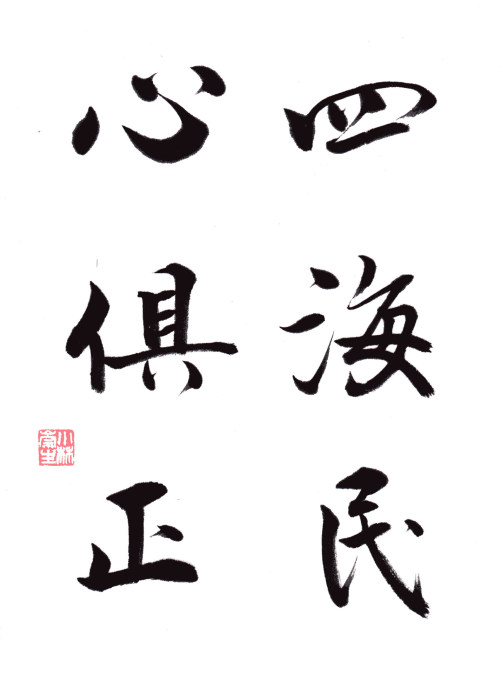 四海民
心俱正
小林